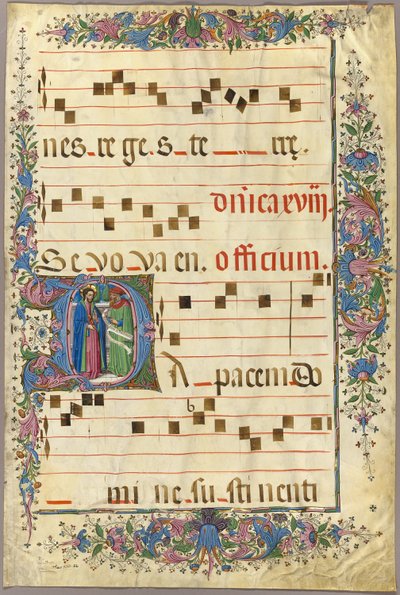 nes_re ge.s_te_ _ _rrę.
dn̄ica xviij.
Se vo_va en. officium.
DA_pacem_Do
_mi_ne_su_sti nenti